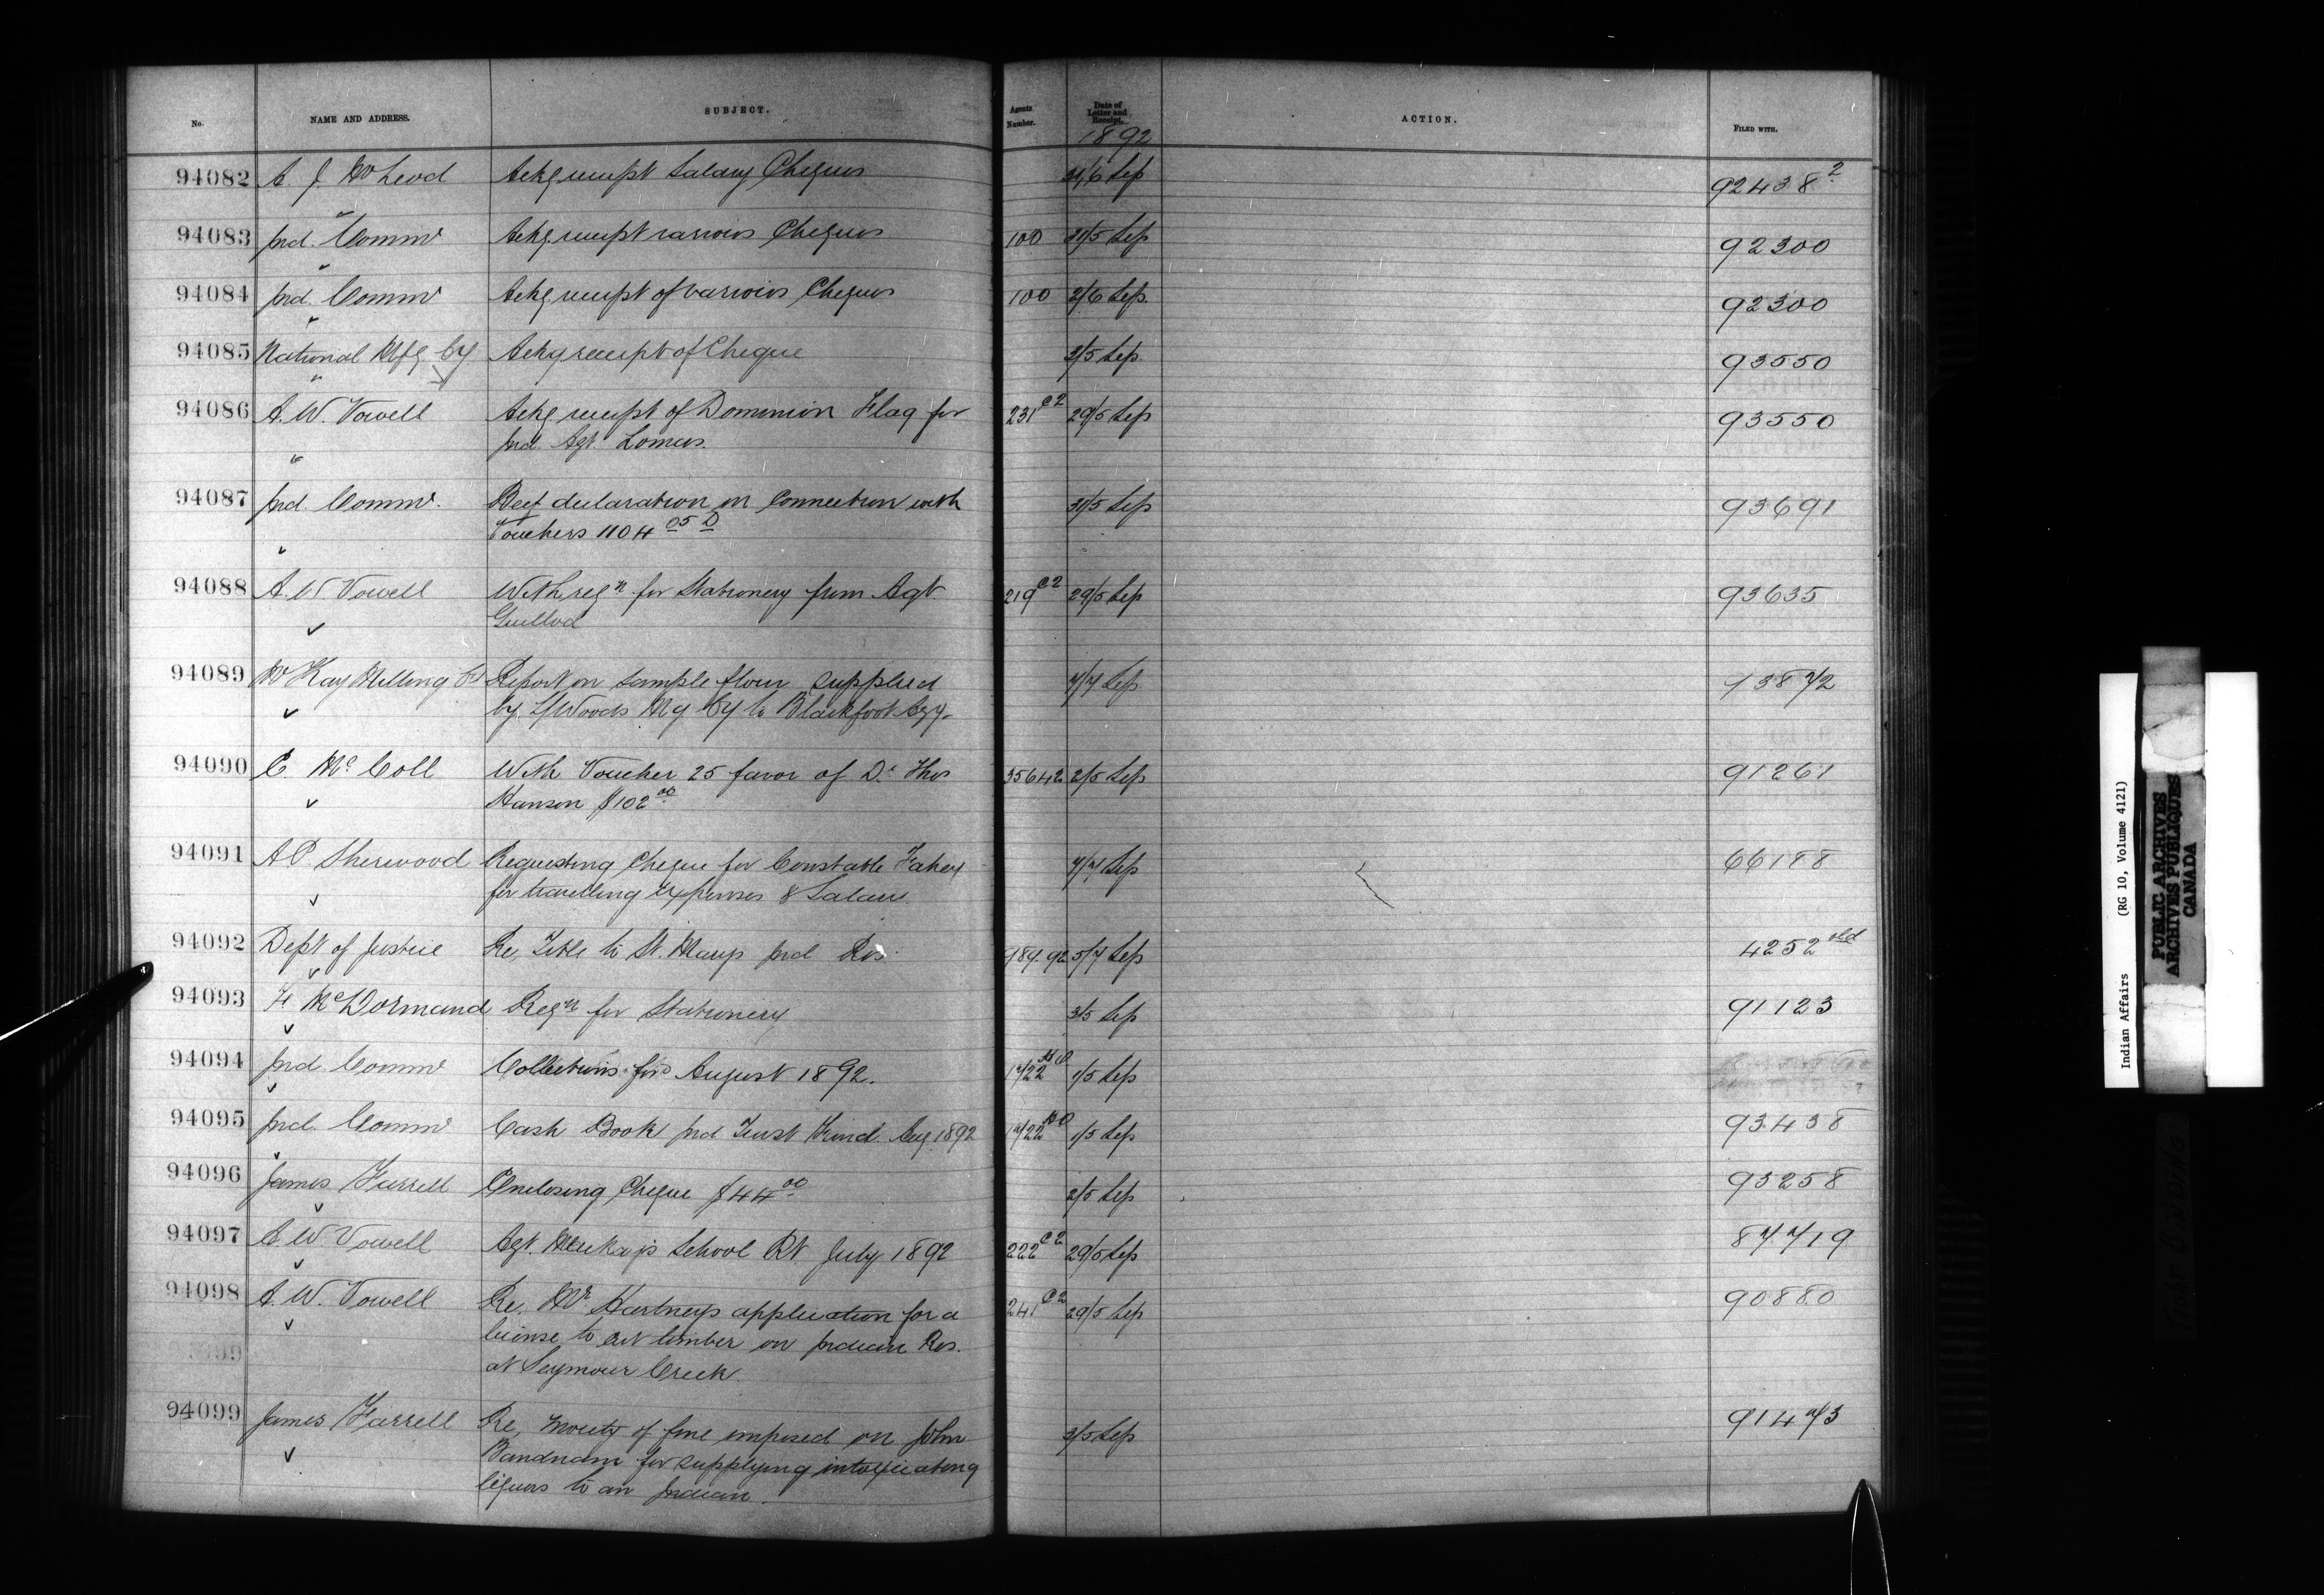 No. NAME AND ADDRESS. SUBJECT. Agents Number. Date of Letter and Receipt. ACTION. FILED WITH.
1892
94082 A. J. McLeod Ackg receipt Salary Cheques 31/6 Sep 92438 2
94083 Ind. Commr Ackg receipt various Cheques 100 31/5 Sep 92300
94084 Ind. Commr Ackg receipt of various Cheques 100 2/6 Sep. 92300
94085 National Mfg Cy Ackg receipt of Cheque 3/5 Sep 93550
94086 A. W. Vowell Ackg receipt of Dominion Flag for 231 C2 29/5 Sep 93550
Ind. Agt. Lomas.
94087 Ind. Commr. Beef declaration in connection with 31/5 Sep 93691
Vouchers 1104 05 D
94088 A. W Vowell With reqn for Stationery from Agt. 219 C2 29/5 Sep 93635
Guillod
94089 McKay Milling Co Report on sample flour supplied 7/7 Sep 93872
by L/Woods Mg Cy to Blackfoot Agy.
94090 E. McColl With Voucher 25 favor of Dr Thos 35642 2/5 Sep 91261
Hanson $102 00
94091 A P. Sherwood Requesting Cheque for Constable Fahey 7/7 Sep 66188
for travelling expenses & Salary
94092 Dept of Justice Re, Title to St. Marys Ind Res. 989.92 5/7 Sep 4252 old
94093 F. McDormand Reqn for Stationery 3/5 Sep 91123
94094 Ind. Commr Collections for August 1892. 1/5 Sep
94095 Ind. Commr Cash Book Ind Trust Fund Aug 1892 1/5 Sep 93438
94096 James Farrell Enclosing Cheque $44 00 2/5 Sep 93258
94097 A W Vowell Agt. Mackay's School Rt July 1892 222 C2 29/5 Sep 87719
94098 A. W. Vowell Re, Mr Hartney's application for a 241 C2 29/5 Sep 90880
license to cut timber on Indian Res.
at Seymour Creek.
94099 James Farrell Re, moiety of fine imposed on John 3/5 Sep 91473
Bandnam for supplying intoxicating
liquors to an Indian.
Indian Affairs (RG 10, Volume 4121)
PUBLIC ARCHIVES
ARCHIVES PUBLIQUES
CANADA